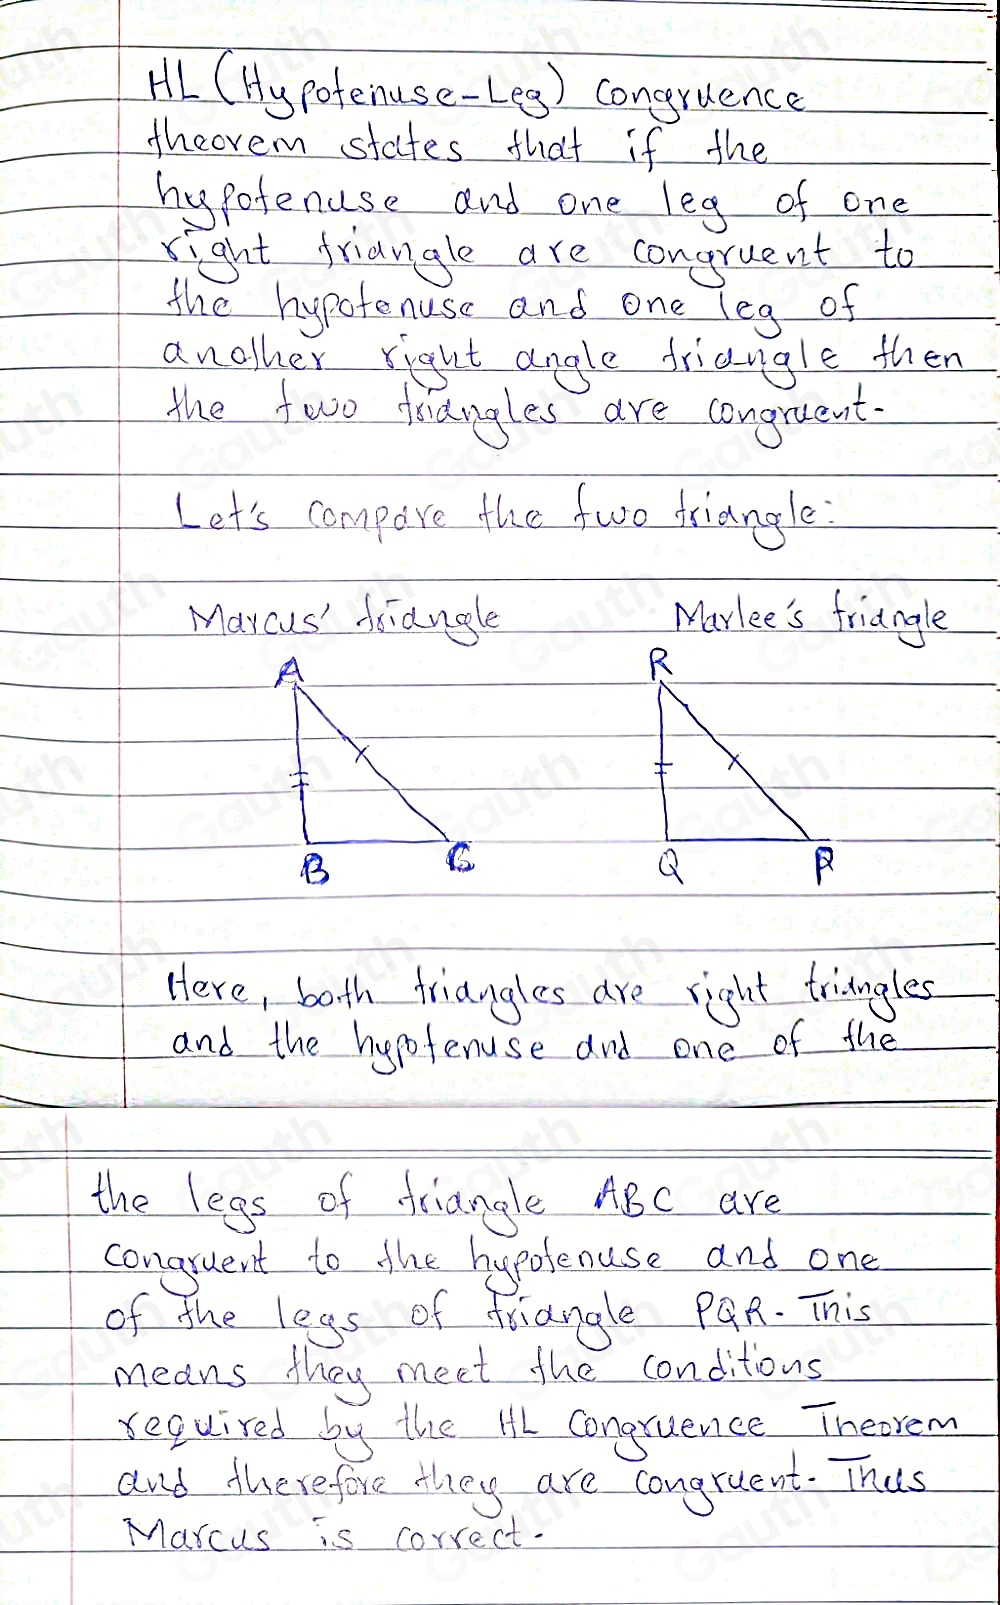 HL (Hypotenuse-Leg) congruence
theorem states that if the
hypotenuse and one leg of one
right triangle are congruent to
the hypotenuse and one leg of
another right angle triangle then
the two triangles are congruent.
Let's compare the two triangle:
Marcus' triangle Marlee's triangle
A R
B C Q P
Here, both triangles are right triangles
and the hypotenuse and one of the
the legs of triangle ABC are
congruent to the hypotenuse and one
of the legs of triangle PQR. This
means they meet the conditions
required by the HL Congruence Theorem
and therefore they are congruent. Thus
Marcus is correct.